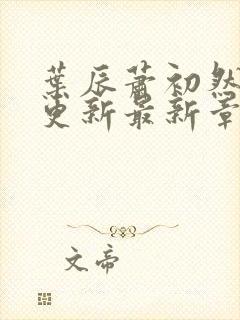 葉辰蕭初然
更新最新章
文帝